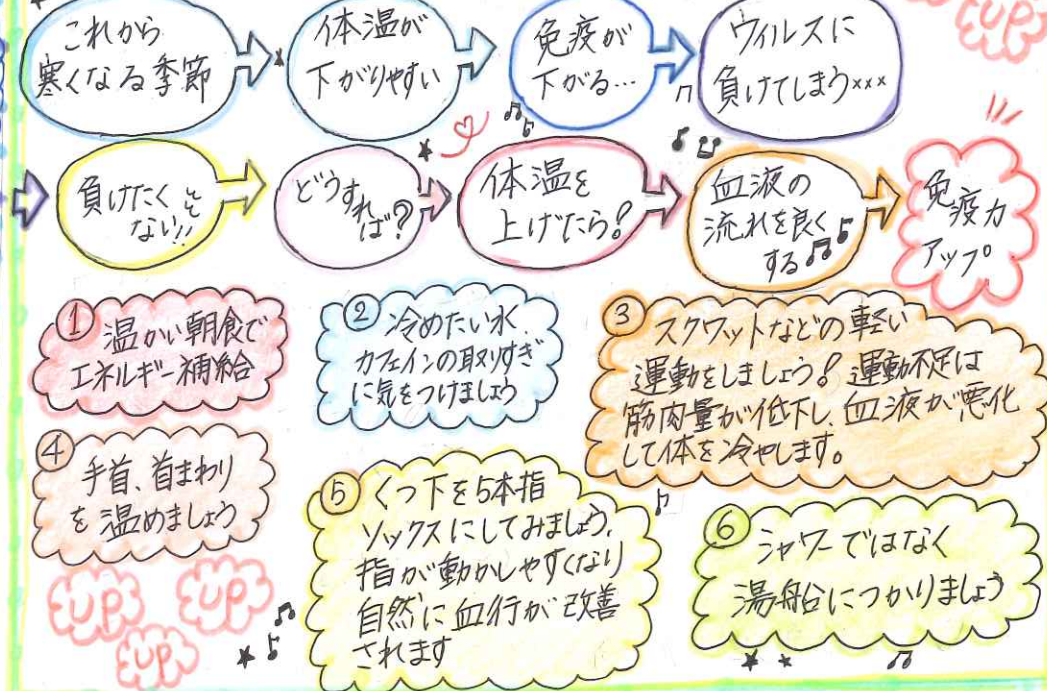 これから
寒くなる季節
体温が
下がりやすい
免疫が
下がる…
ウィルスに
負けてしまう×××
負けたく
ない!!
どうすれ
ば?
体温を
上げたら!
血液の
流れを良く
する
免疫力
アップ
① 温かい朝食で
エネルギー補給
② 冷めたい水
カフェインの取りすぎ
に気をつけましょう
③ スクワットなどの軽い
運動をしましょう!運動不足は
筋肉量が低下し、血液が悪化
して体を冷やします。
④
手首、首まわり
を温めましょう
⑤ くつ下を5本指
ソックスにしてみましょう、
指が動かしやすくなり
自然に血行が改善
されます
⑥ シャワーではなく
湯船につかりましょう
UP
UP
UP
UP